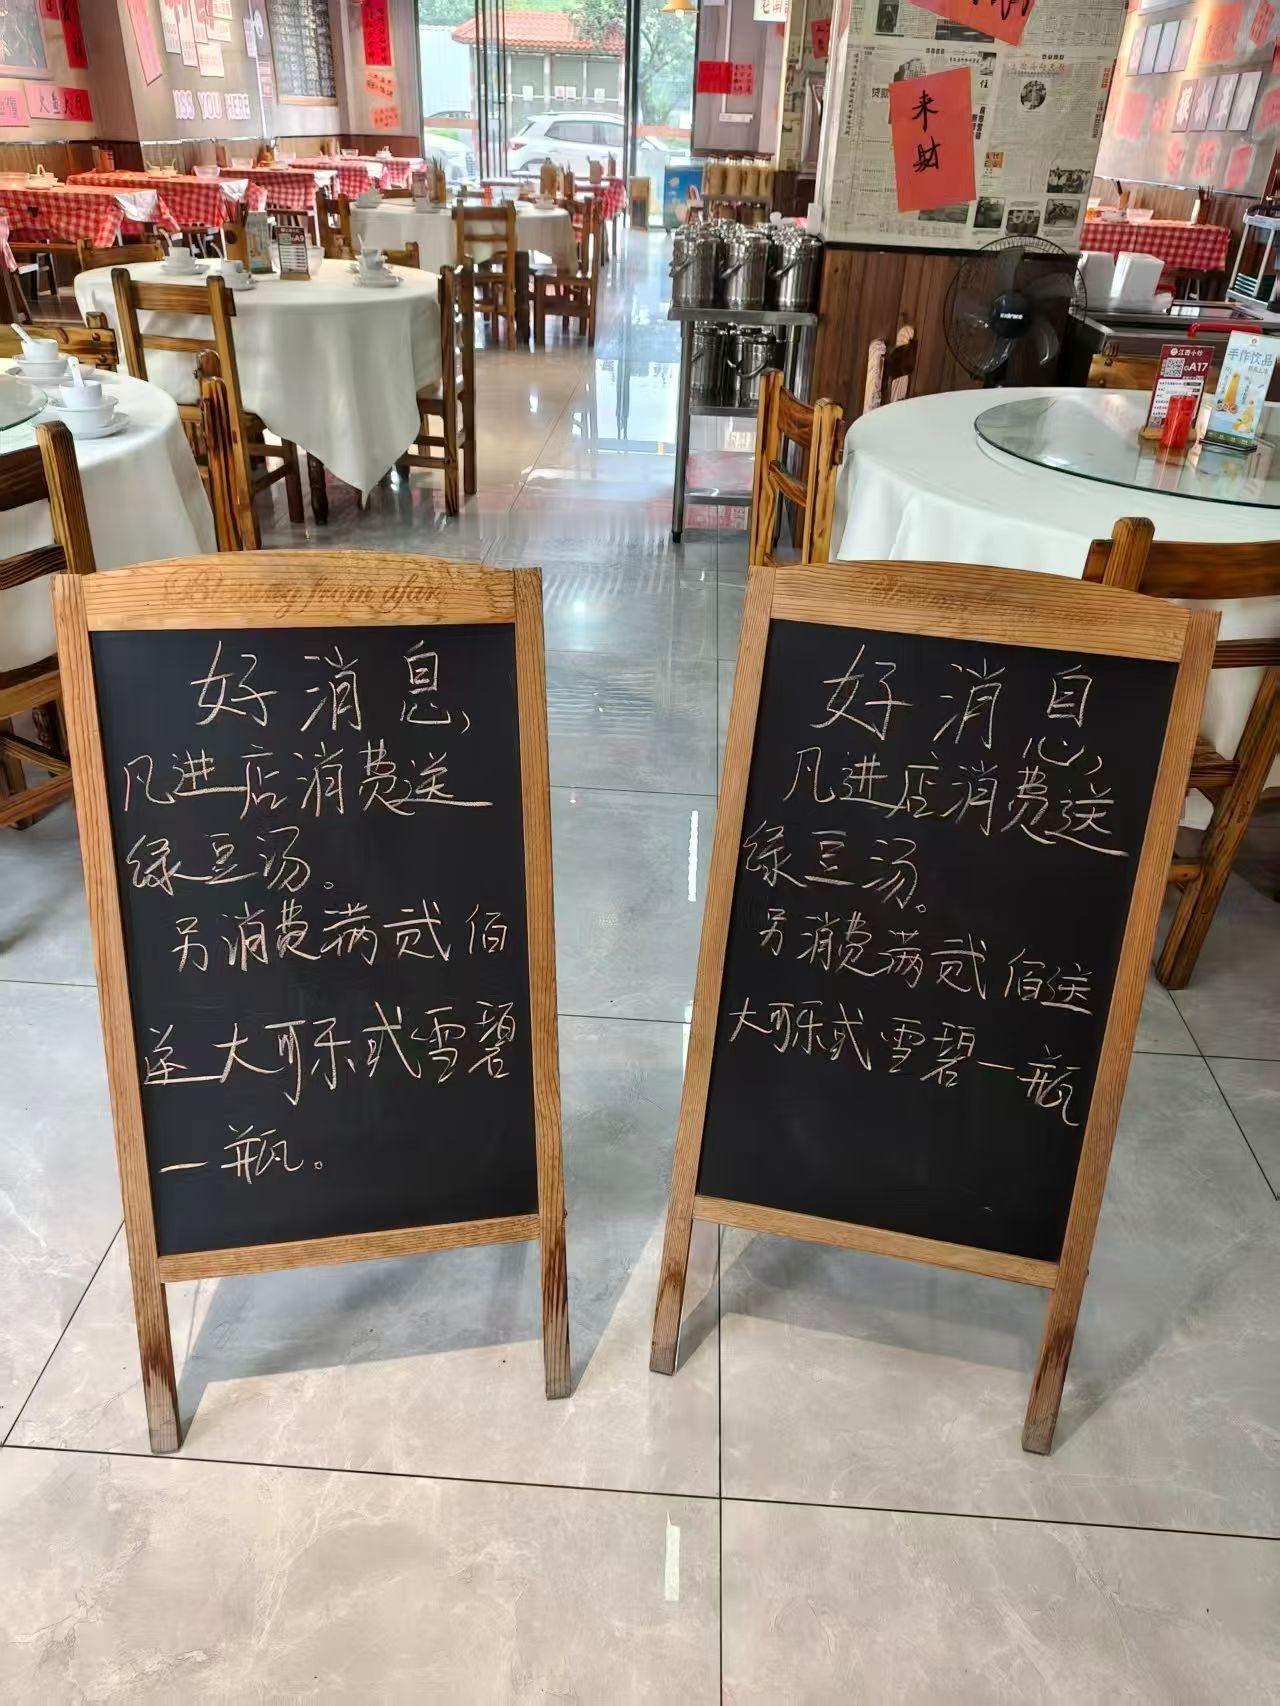 来财
江西小炒
A17
手作饮品
A9
Blessing from afar
好消息，
凡进店消费送
绿豆汤。
另消费满贰佰
送大可乐或雪碧
一瓶。
好消息，
凡进店消费送
绿豆汤。
另消费满贰佰送
大可乐或雪碧一瓶